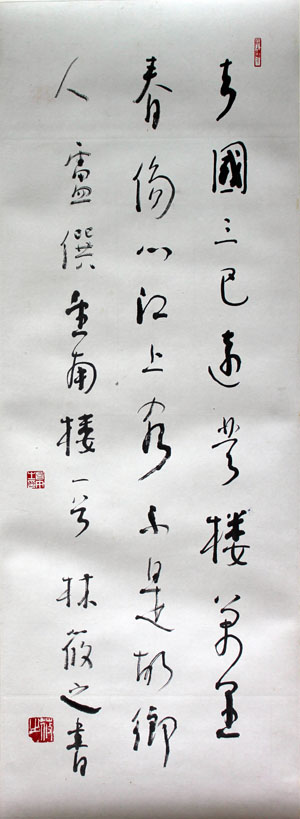 去國三巴遠登楼萬里
春傷心江上客不是故鄉
人 盧僎南楼一首 林筱之書